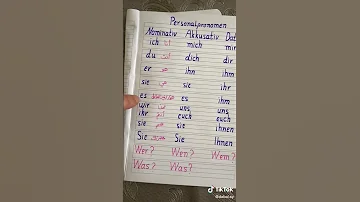 Personalpronomen
Nominativ Akkusativ Dat
ich انا mich mir
du انت dich dir
er هو ihn ihm
sie هي sie ihr
es es ihm
wir نحن uns, uns,
ihr انتم euch euch
sie هم sie ihnen
Sie حضرتك Sie Ihnen
Wer? Wen? Wem?
Was? Was?
TikTok